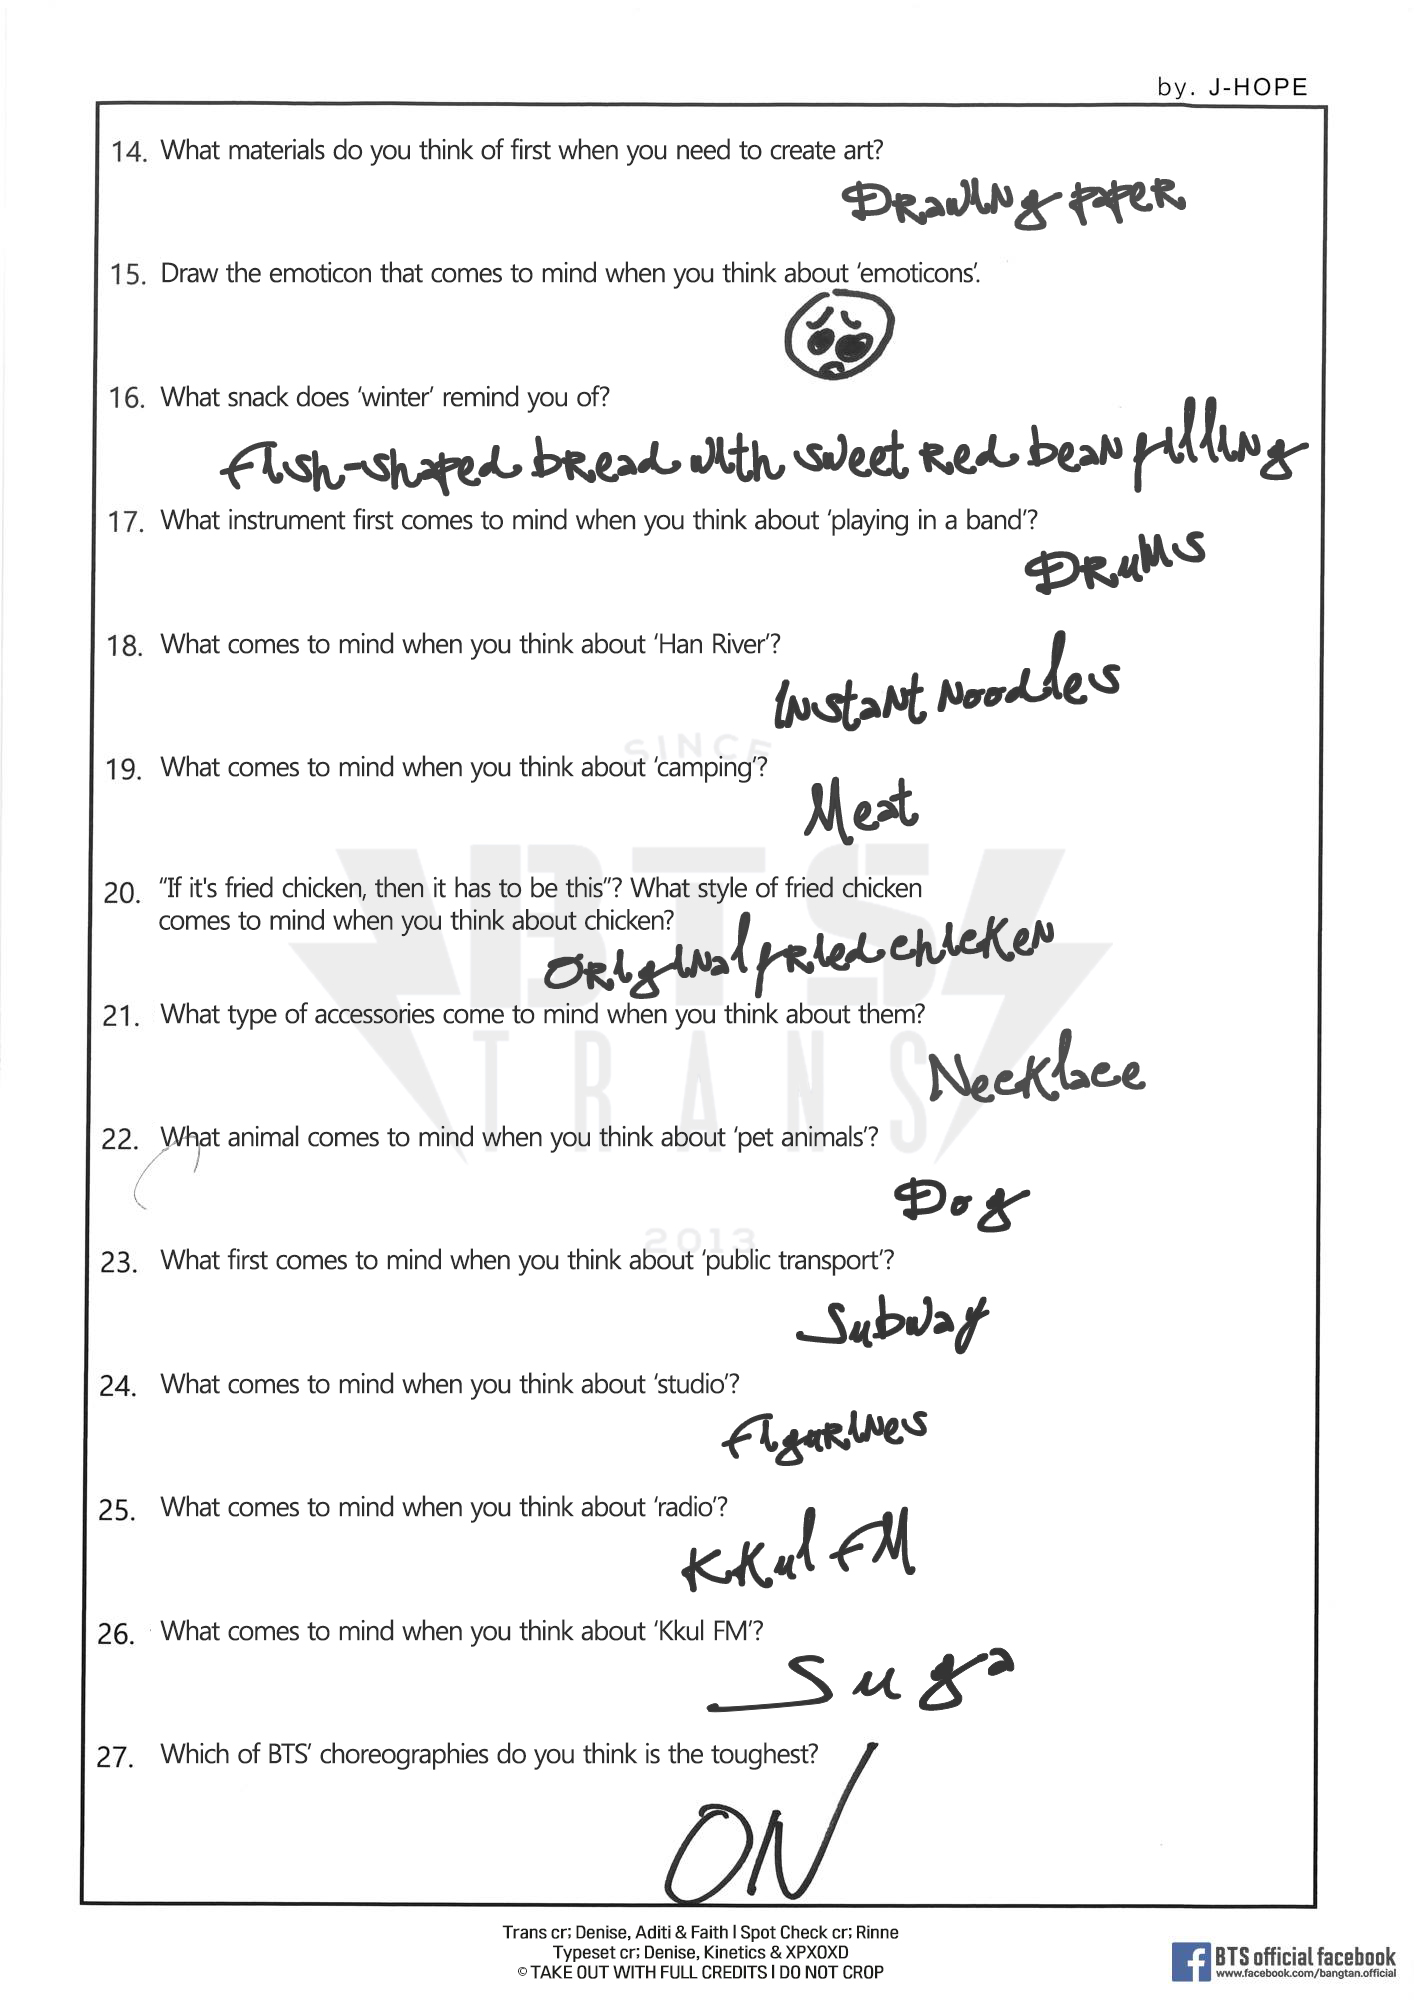 by. J-HOPE
14. What materials do you think of first when you need to create art?
Drawing paper
15. Draw the emoticon that comes to mind when you think about ‘emoticons’.
16. What snack does ‘winter’ remind you of?
Fish-shaped bread with sweet red bean filling
17. What instrument first comes to mind when you think about ‘playing in a band’?
Drums
18. What comes to mind when you think about ‘Han River’?
Instant Noodles
SINCE
19. What comes to mind when you think about ‘camping’?
Meat
BTS
20. “If it's fried chicken, then it has to be this”? What style of fried chicken
comes to mind when you think about chicken?
Original fried chicken
21. What type of accessories come to mind when you think about them?
TRANS
Necklace
22. What animal comes to mind when you think about ‘pet animals’?
Dog
2013
23. What first comes to mind when you think about ‘public transport’?
Subway
24. What comes to mind when you think about ‘studio’?
Figurines
25. What comes to mind when you think about ‘radio’?
Kkul FM
26. What comes to mind when you think about ‘Kkul FM’?
Suga
27. Which of BTS’ choreographies do you think is the toughest?
ON
Trans cr; Denise, Aditi & Faith | Spot Check cr; Rinne
Typeset cr; Denise, Kinetics & XPXOXD
© TAKE OUT WITH FULL CREDITS | DO NOT CROP
BTS official facebook
www.facebook.com/bangtan.official